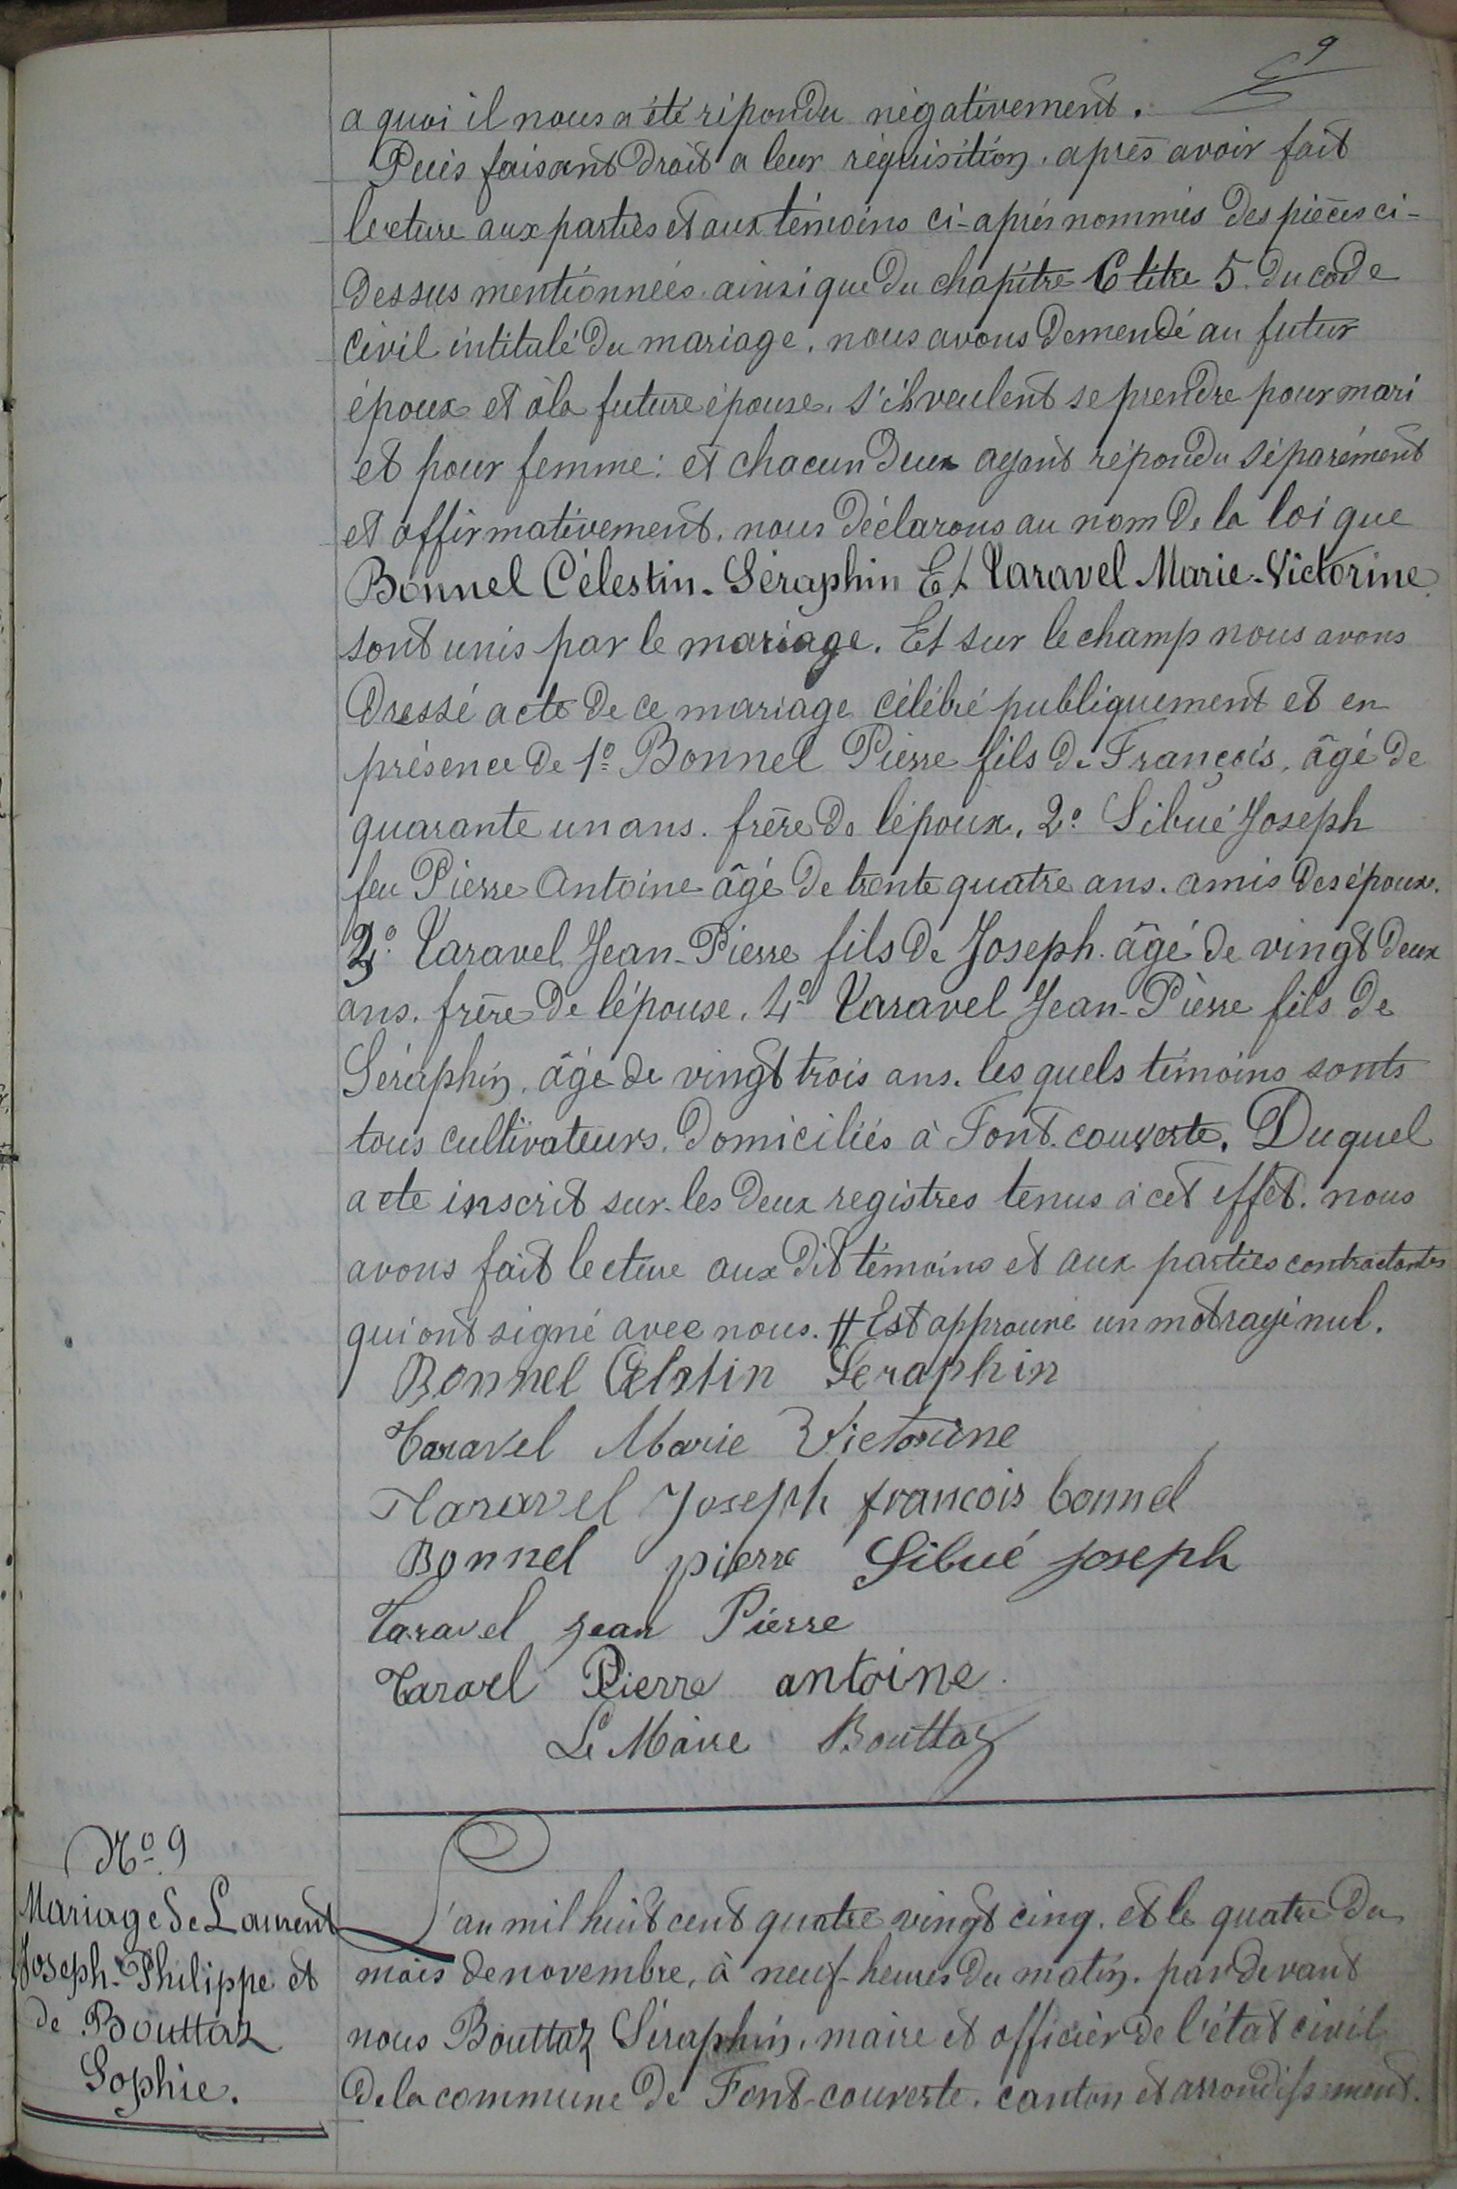 9
a quoi il nous a été répondu négativement.
Puis faisant droit a leur réquisition. après avoir fait
lecture aux parties et aux témoins ci-après nommés des pièces ci-
dessus mentionnées. ainsi que du chapitre 6 titre 5. du code
civil intitulé du mariage. nous avons demendé au futur
époux et à la future épouse. s'ils veulent se prendre pour mari
et pour femme: et chacun deux ayant répondu séparément
et affirmativement. nous déclarons au nom de la loi que
Bonnel Célestin-Séraphin Et Taravel Marie-Victorine
sont unis par le mariage. Et sur le champ nous avons
dressé acte de ce mariage célébré publiquement et en
présence de 1º Bonnel Pierre fils de François, âgé de
quarante un ans. frère de l'époux, 2º Sibué Joseph
feu Pierre Antoine âgé de trente quatre ans. amis des époux.
3º Taravel Jean-Pierre fils de Joseph. âgé de vingt deux
ans. frère de l'épouse. 4º Taravel Jean-Pierre fils de
Séraphin, âgé de vingt trois ans. les quels témoins sonts
tous cultivateurs. domiciliés à Font-couverte. Duquel
acte inscrit sur les deux registres tenus à cet effet. nous
avons fait lecture aux dit témoins et aux parties contractantes
qui ont signé avec nous. # Est approuvé un mot rayé nul.
Bonnel Célestin Seraphin
Taravel Marie Victorine
Taravel Joseph francois bonnel
Bonnel pierre Sibué joseph
Taravel jean Pierre
Taravel Pierre antoine
Le Maire Bouttaz
Nº 9
Mariage de Laurent
Joseph-Philippe et
de Bouttaz
Sophie.
L'an mil huit cent quatre vingt cinq. et le quatre du
mois de novembre, à neuf heures du matin. par devant
nous Bouttaz Séraphin, maire et officier de l'état civil
de la commune de Font-couverte. canton et arrondissement.